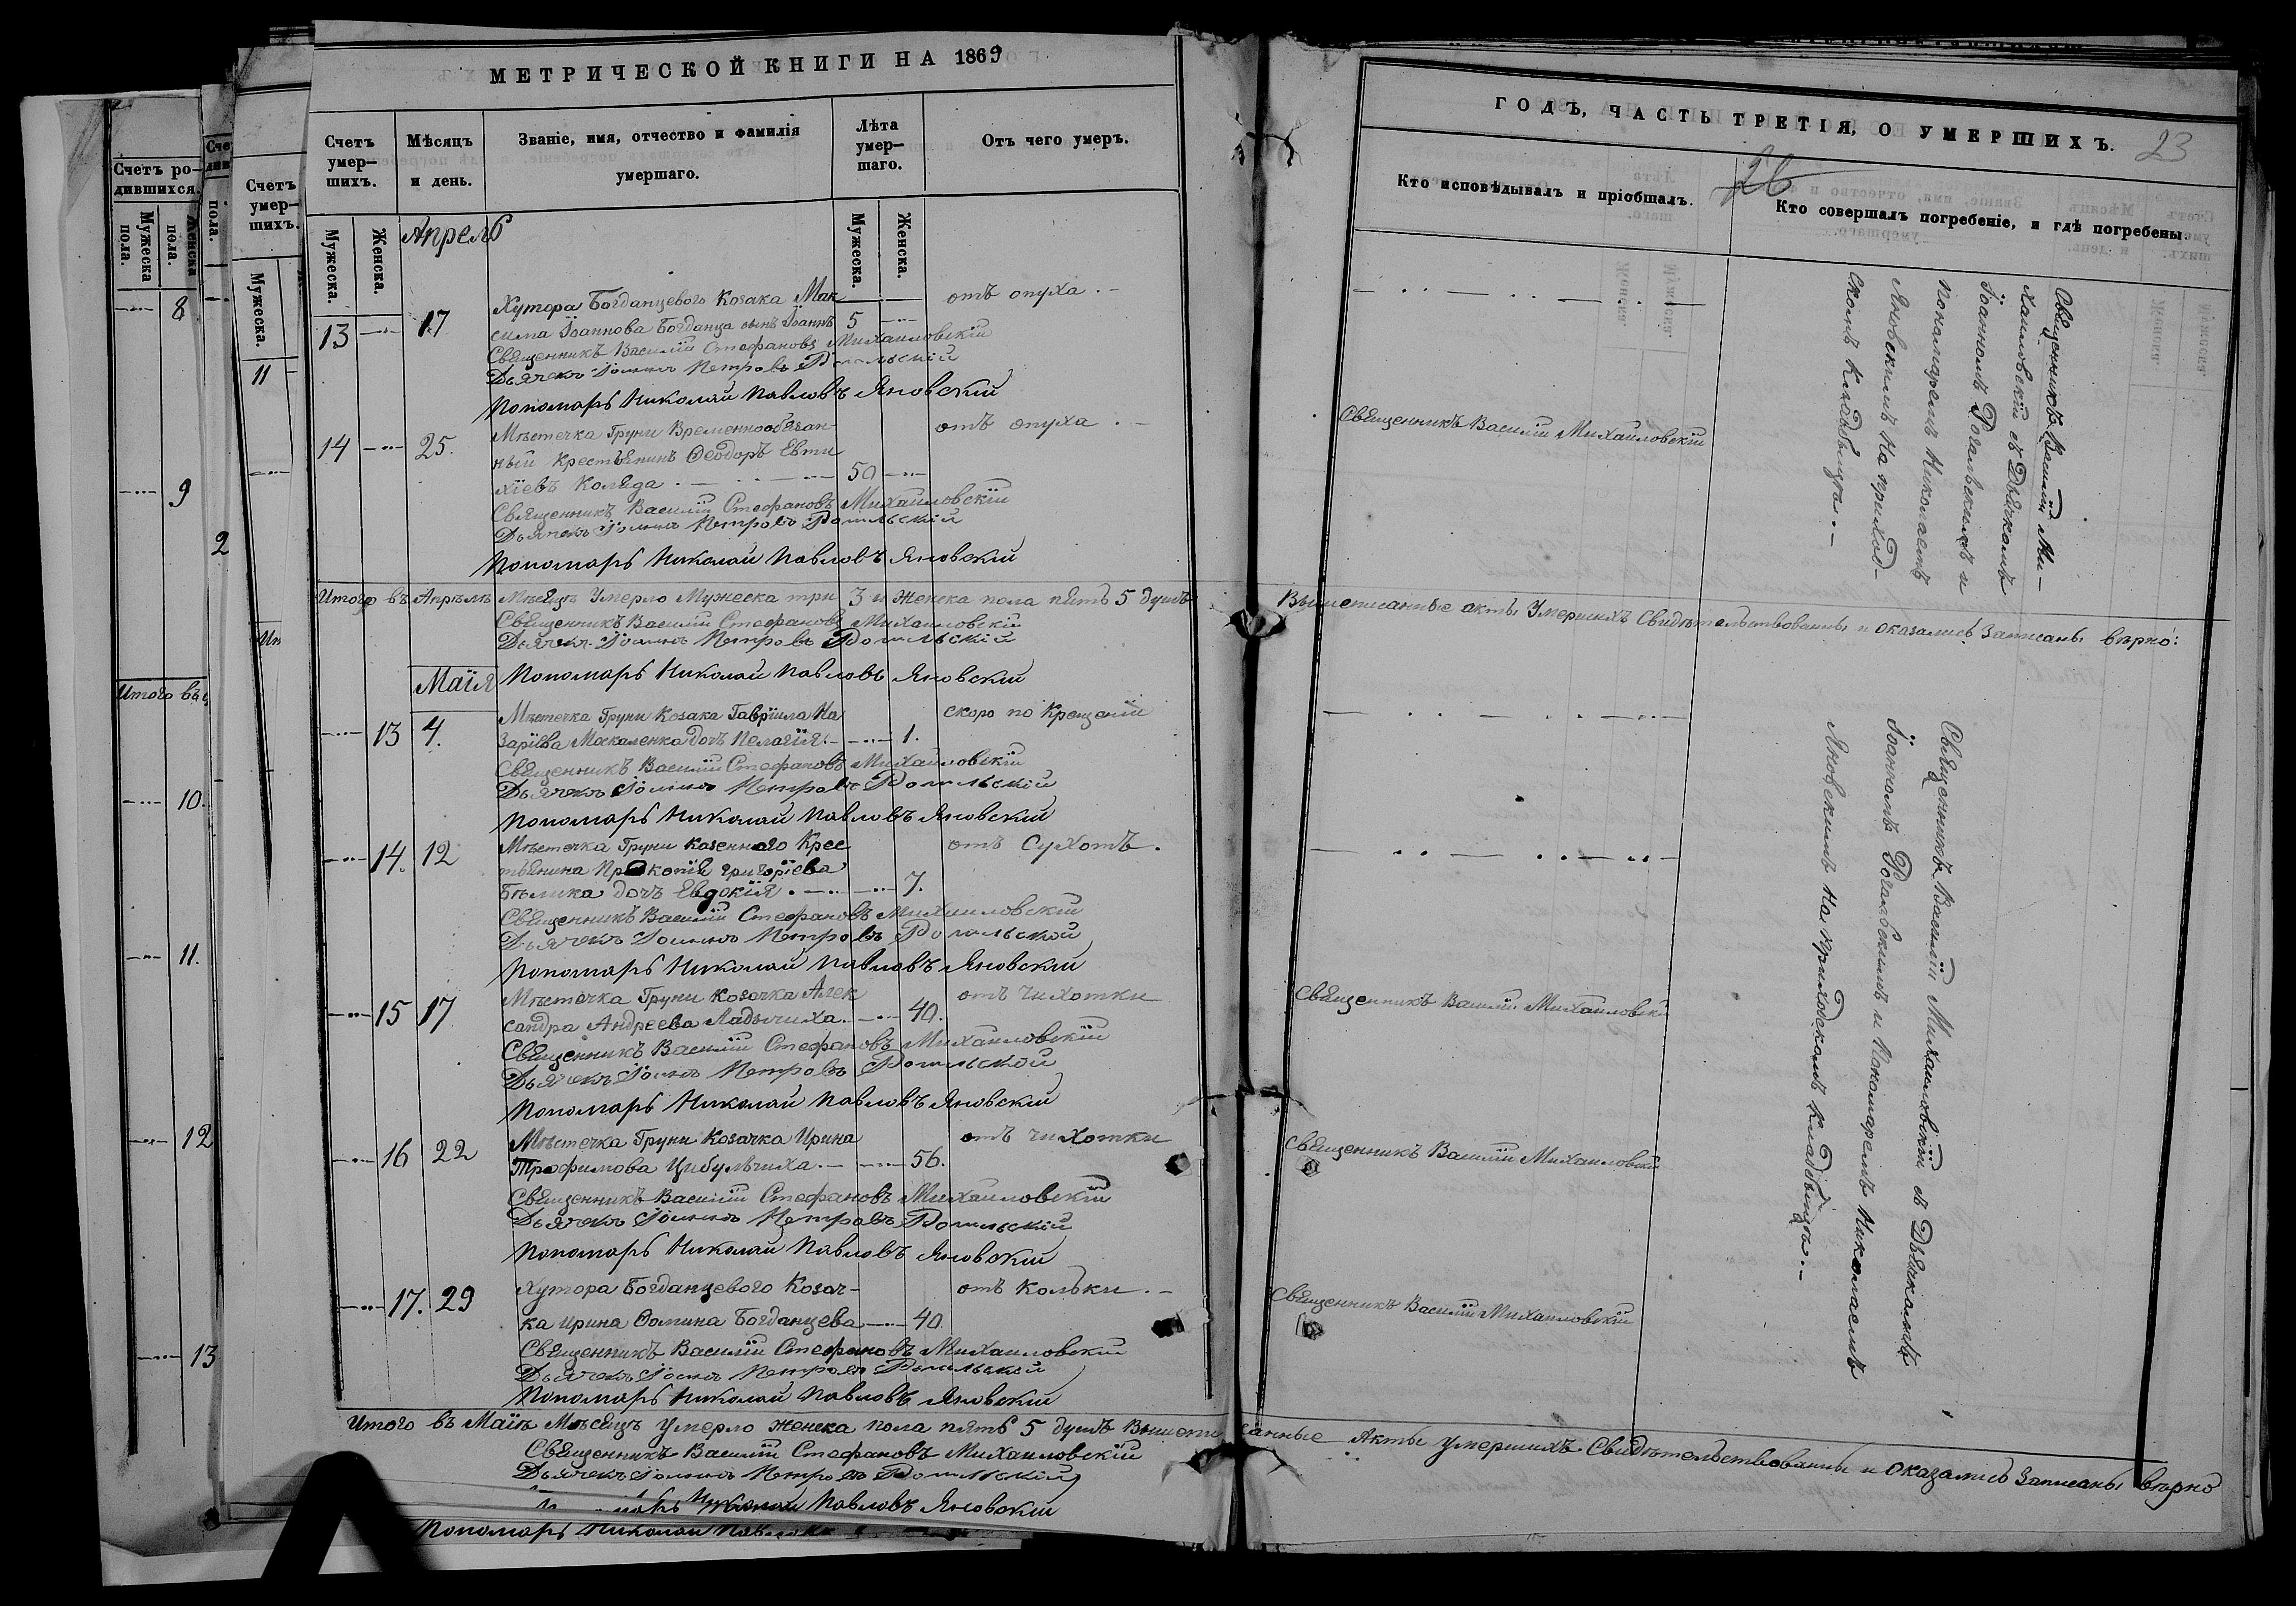 МЕТРИЧЕСКОЙ КНИГИ НА 1869
Счетъ умер-шихъ.
Мѣсяцъ и день.
Званіе, имя, отчество и фамилія умершаго.
Лѣта умер-шаго.
Отъ чего умеръ.
Мужеска.
Женска.
Мужеска.
Женска.
Апрель
Хутора Богданцевого Козака Мак
отъ опуха
13 17 сима Іоаннова Богданца сынъ Іоаннъ 5
Священникъ Василій Стефановъ Михаиловскій
Дьячекъ Іоаннъ Петровъ Рогальскій
Пономарь Николай Павловъ Яновскій
14 25. Мѣстечка Груни Временнообязан-
отъ опуха
ный Крестьянинъ Ѳеодоръ Евти
хіевъ Коляда 50
Священникъ Василій Стефановъ Михаиловскій
Дьячекъ Іоаннъ Петровъ Рогальскій
Пономарь Николай Павловъ Яновскій
Итого въ Апрѣлѣ Мѣсяцѣ Умерло Мужеска три 3 и Женска пола пять 5 душъ
Священникъ Василій Стефановъ Михаиловскій
Дьячекъ Іоаннъ Петровъ Рогальскій
Пономарь Николай Павловъ Яновскій
Маія
13 4. Мѣстечка Груни Козака Гавріила На
скоро по Крещеніи
заріева Москаленка дочь Пелагія 1.
Священникъ Василій Стефановъ Михаиловскій
Дьячекъ Іоаннъ Петровъ Рогальскій
Пономарь Николай Павловъ Яновскій
14. 12 Мѣстечка Груни Козенного Крес
отъ Сухотъ.
тьянина Прокопія Григоріева
Бѣлика дочь Евдокія 7.
Священникъ Василій Стефановъ Михаиловскій
Дьячекъ Іоаннъ Петровъ Рогальской
Пономарь Николай Павловъ Яновскій
15 17 Мѣстечка Груни Козачка Алек
отъ чихотки
сандра Андреева Ладычиха 40.
Священникъ Василій Стефановъ Михаиловскій
Дьячекъ Іоаннъ Петровъ Рогальской
Пономарь Николай Павловъ Яновскій
16 22 Мѣстечка Груни Козачка Ирина
отъ чихотки
Трофимова Цибульчиха 56.
Священникъ Василій Стефановъ Михаиловскій
Дьячекъ Іоаннъ Петровъ Рогальскій
Пономарь Николай Павловъ Яновскій
17. 29 Хутора Богданцевого Козач-
отъ Кольки
ка Ирина Ѳомина Богданцева 40.
Священникъ Василій Стефановъ Михаиловскій
Дьячекъ Іоаннъ Петровъ Рогальскій
Пономарь Николай Павловъ Яновскій
Итого въ Маіѣ Мѣсяцѣ Умерло Женска пола пять 5 душъ Вышеписанные Акты Умершихъ Свидѣтельствованы и оказались Записаны вѣрно
Священникъ Василій Стефановъ Михаиловскій
Дьячекъ Іоаннъ Петровъ Рогальскій
Николай Павловъ Яновскій
Пономарь Николай
Счетъ ро-дившихся.
Мужеска пола.
Женска пола.
8
9
Итого въ
10.
11.
12
13
Счетъ умер-шихъ.
Мужеска.
11
2
ГОДЪ, ЧАСТЬ ТРЕТІЯ, О УМЕРШИХЪ.
23
26
Кто исповѣдывалъ и пріобщалъ.
Кто совершалъ погребеніе, и гдѣ погребены.
Священникъ Василій Михаиловскій
Священникъ Василій Ми-
хаиловскій съ Дьячкомъ
Іоанномъ Рогальскимъ и
пономаремъ Николаемъ
Яновскимъ На приход-
скомъ кладбищѣ.
Вышеписанные акты Умершихъ Свидѣтельствованы и оказались Записаны вѣрно:
Священникъ Василій Михаиловскій
Священникъ Василій Михаиловскій
Священникъ Василій Михаиловскій
Священникъ Василій Михаиловскій съ Дьячкомъ
Іоанномъ Рогальскимъ и Пономаремъ Николаемъ
Яновскимъ На приходскомъ кладбищѣ.